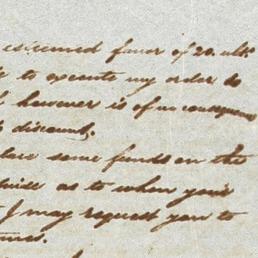 esteemed favor of 20. ulto
to execute my order to
however is of no consequence
discount.
place some funds on the
as to when your
I may request you to